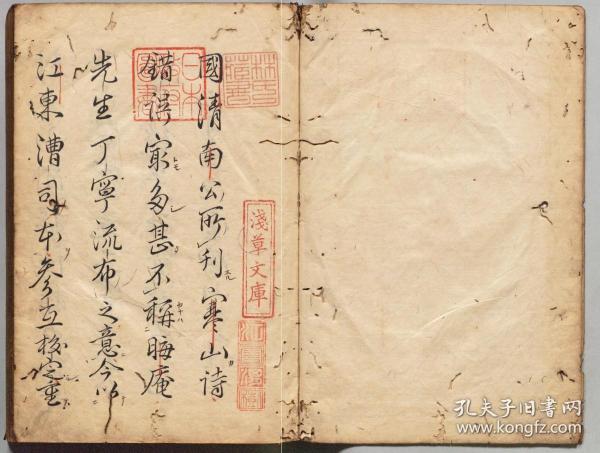 林氏藏書
國清南公所刊寒山詩
錯誤㝡多甚不稱晦庵
先生丁寧流布之意今以
江東漕司本參互挍定重
淺草文庫
孔夫子旧书网
www.kongfz.com